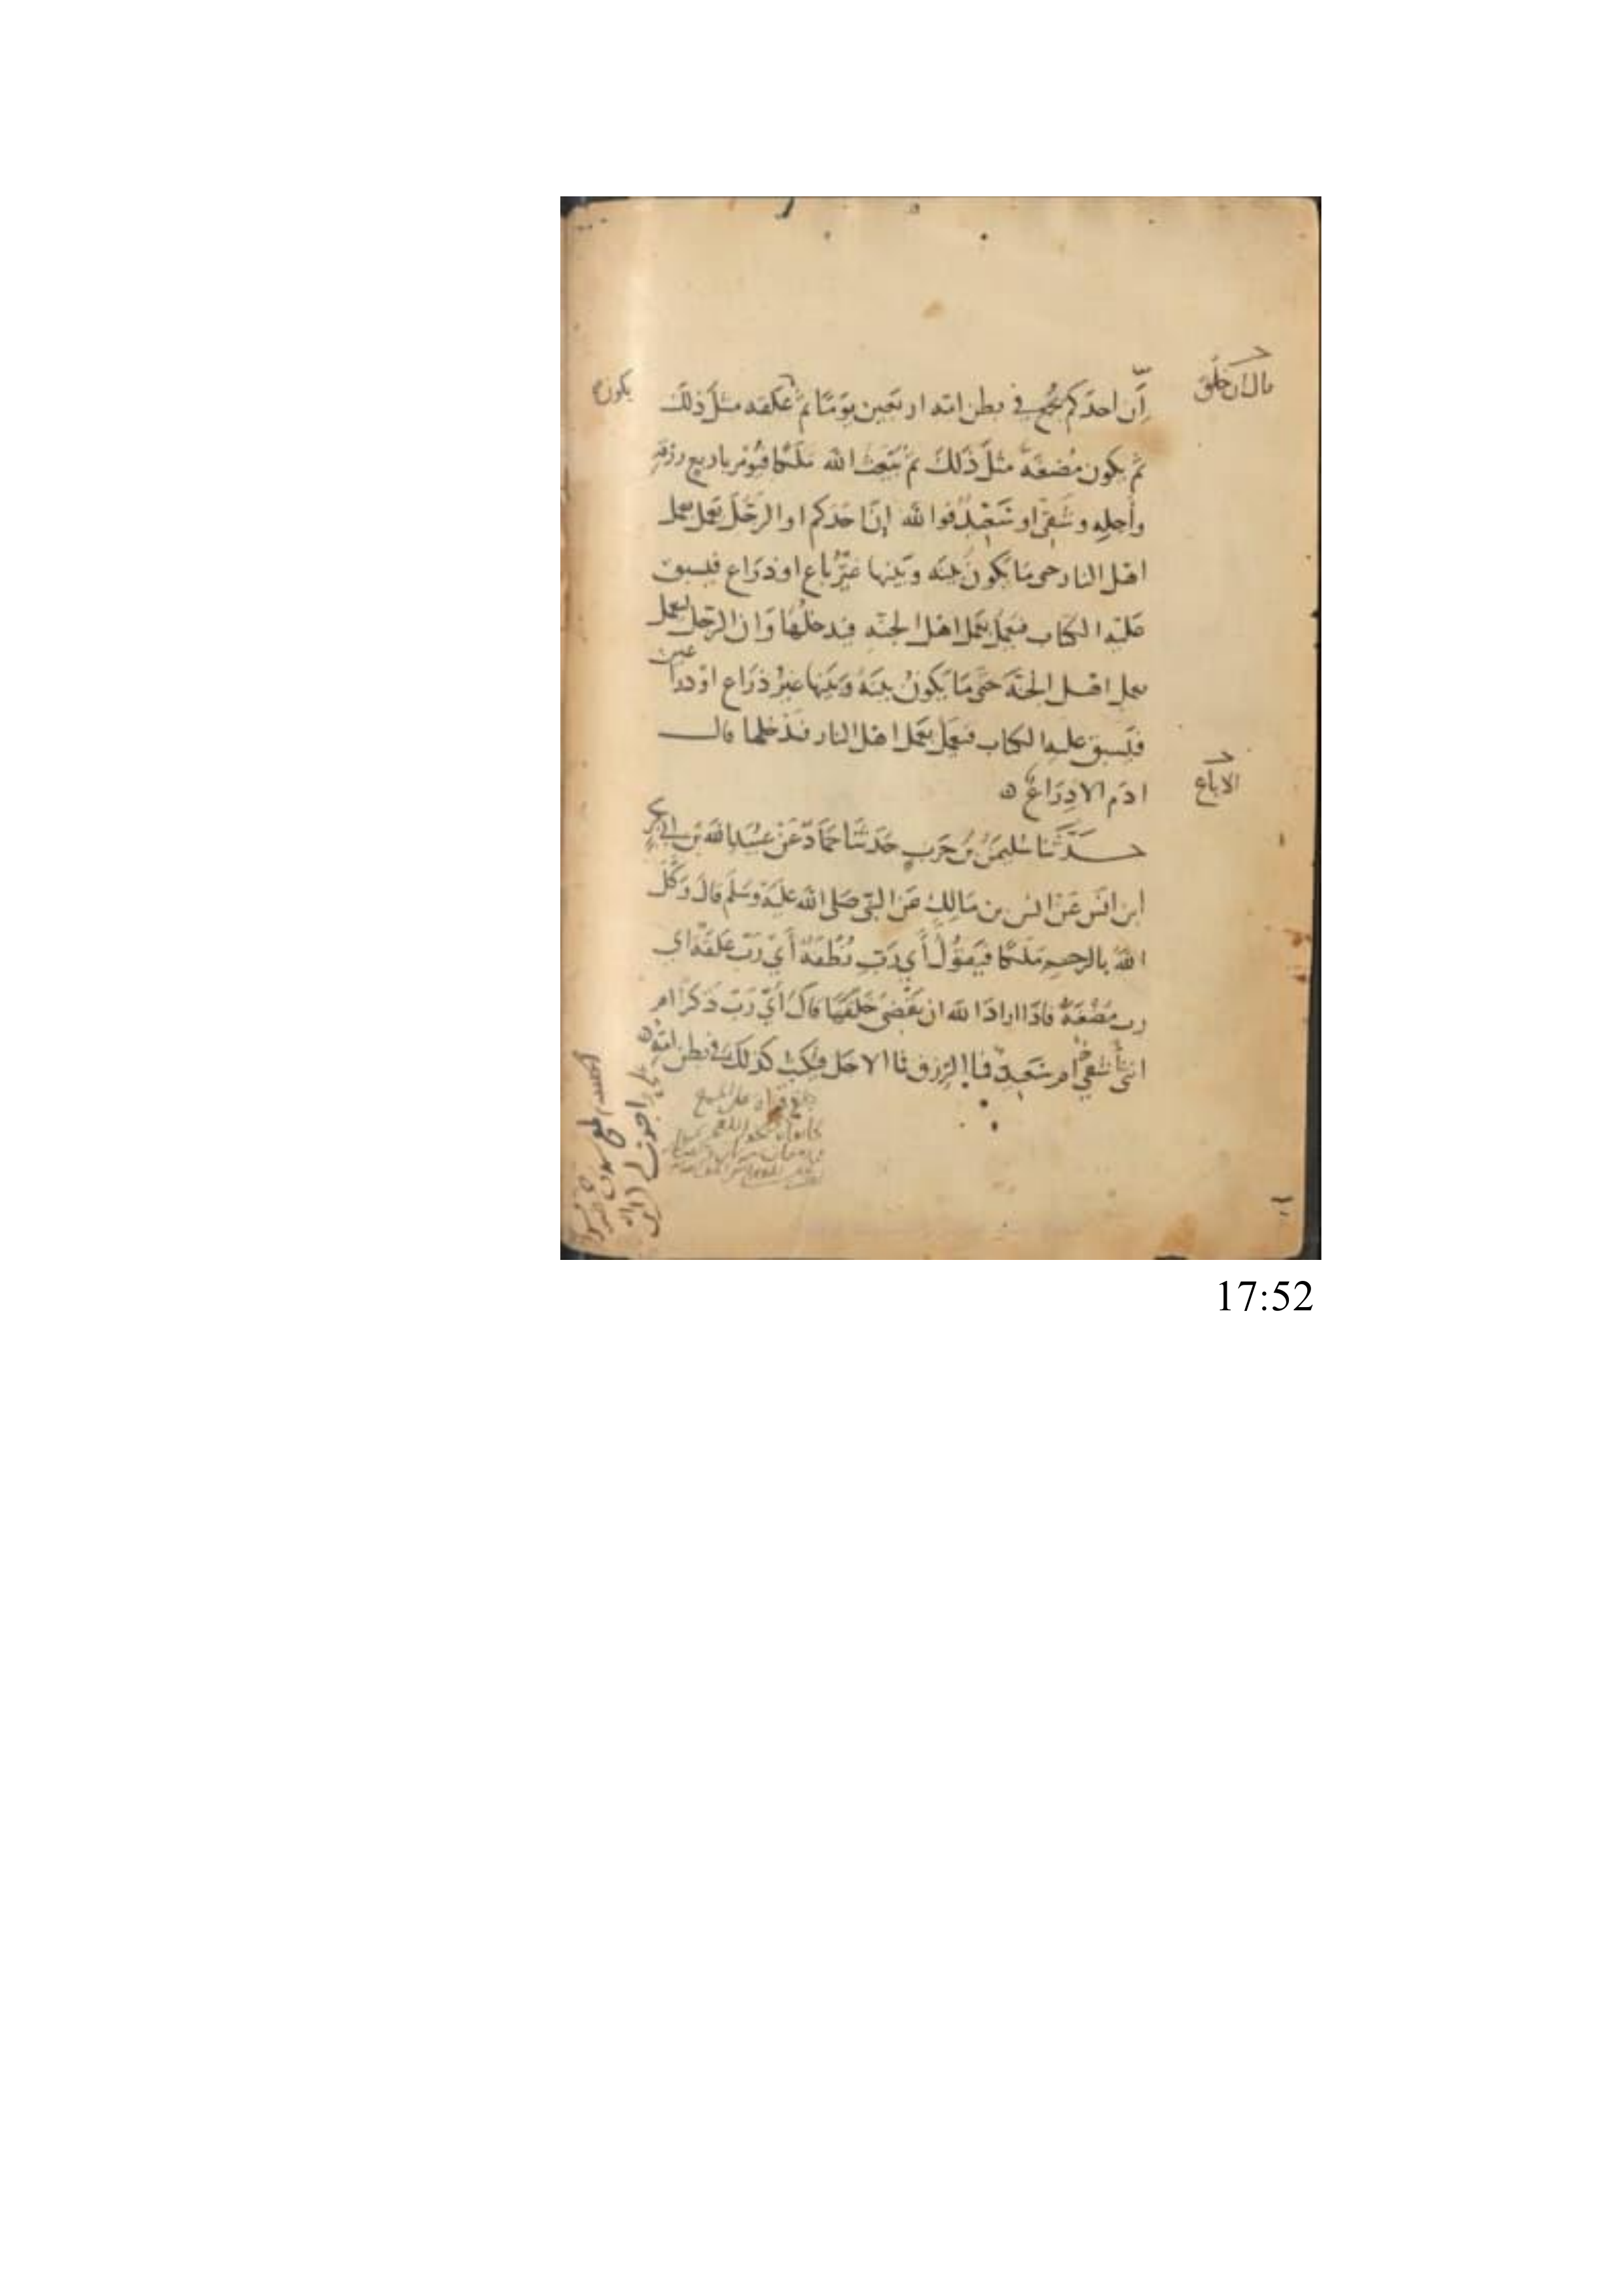 قال ان خلق
إن احدكم يجمع في بطن امه اربعين يومًا ثم علقه مثل ذلك
يكون
ثم يكون مضغة مثل ذلك ثم يبعث الله ملكا فيؤمر باربع رزقه
وأجله وشقي او سَعِيد فوالله إن احدكم او الرجل يعمل بعمل
اهل النار حتى ما يكون بينه وبينها غير باع او ذراع فيسبق
عليه الكتاب فيعمل بعمل اهل الجنه فيدخلها وان الرجل ليعمل
بعمل اهل الجنة حتى ما يكون بينه وبينها غير ذراع او ذراعين
فيسبق عليه الكتاب فيعمل بعمل اهل النار فيدخلها قال
ادم الا ذراع
الا باع
حدثنا سليمن بن حرب حدثنا حماد عن عبيد الله بن ابي بكر
ابن انس عن انس بن مالك عن النبي صلى الله عليه وسلم قال وكل
الله بالرحم ملكا فيقول أي رب نطفة أي رب علقة اي
رب مضغة فاذا اراد الله ان يقضي خلقها قال أي رب ذكر ام
انثى أشقي ام سعيد فما الرزق فما الاجل فيكتب كذلك في بطن امه
بلغ قراة على
17:52